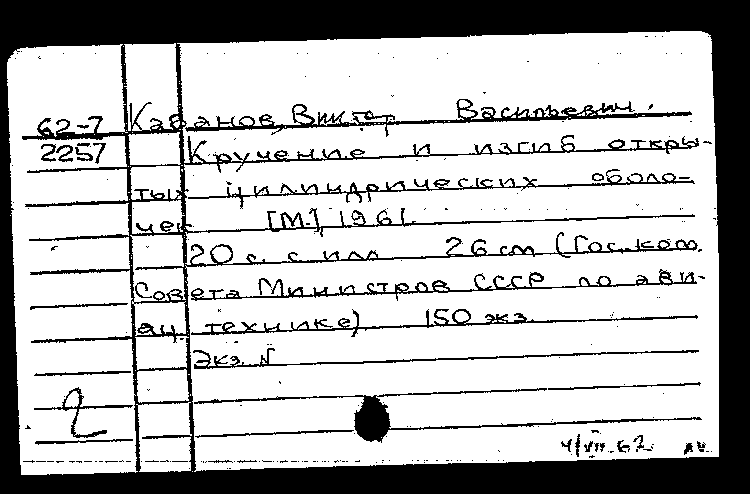 62-7 Кабанов, Виктор Васильевич.
2257 Кручение и изгиб откры-
тых цилиндрических оболо-
чек [М.], 1961.
20 с. с илл 26 см (Гос. ком.
Совета Министров СССР по ави-
ац. технике) 150 экз.
Экз. N
2
4/VII-62